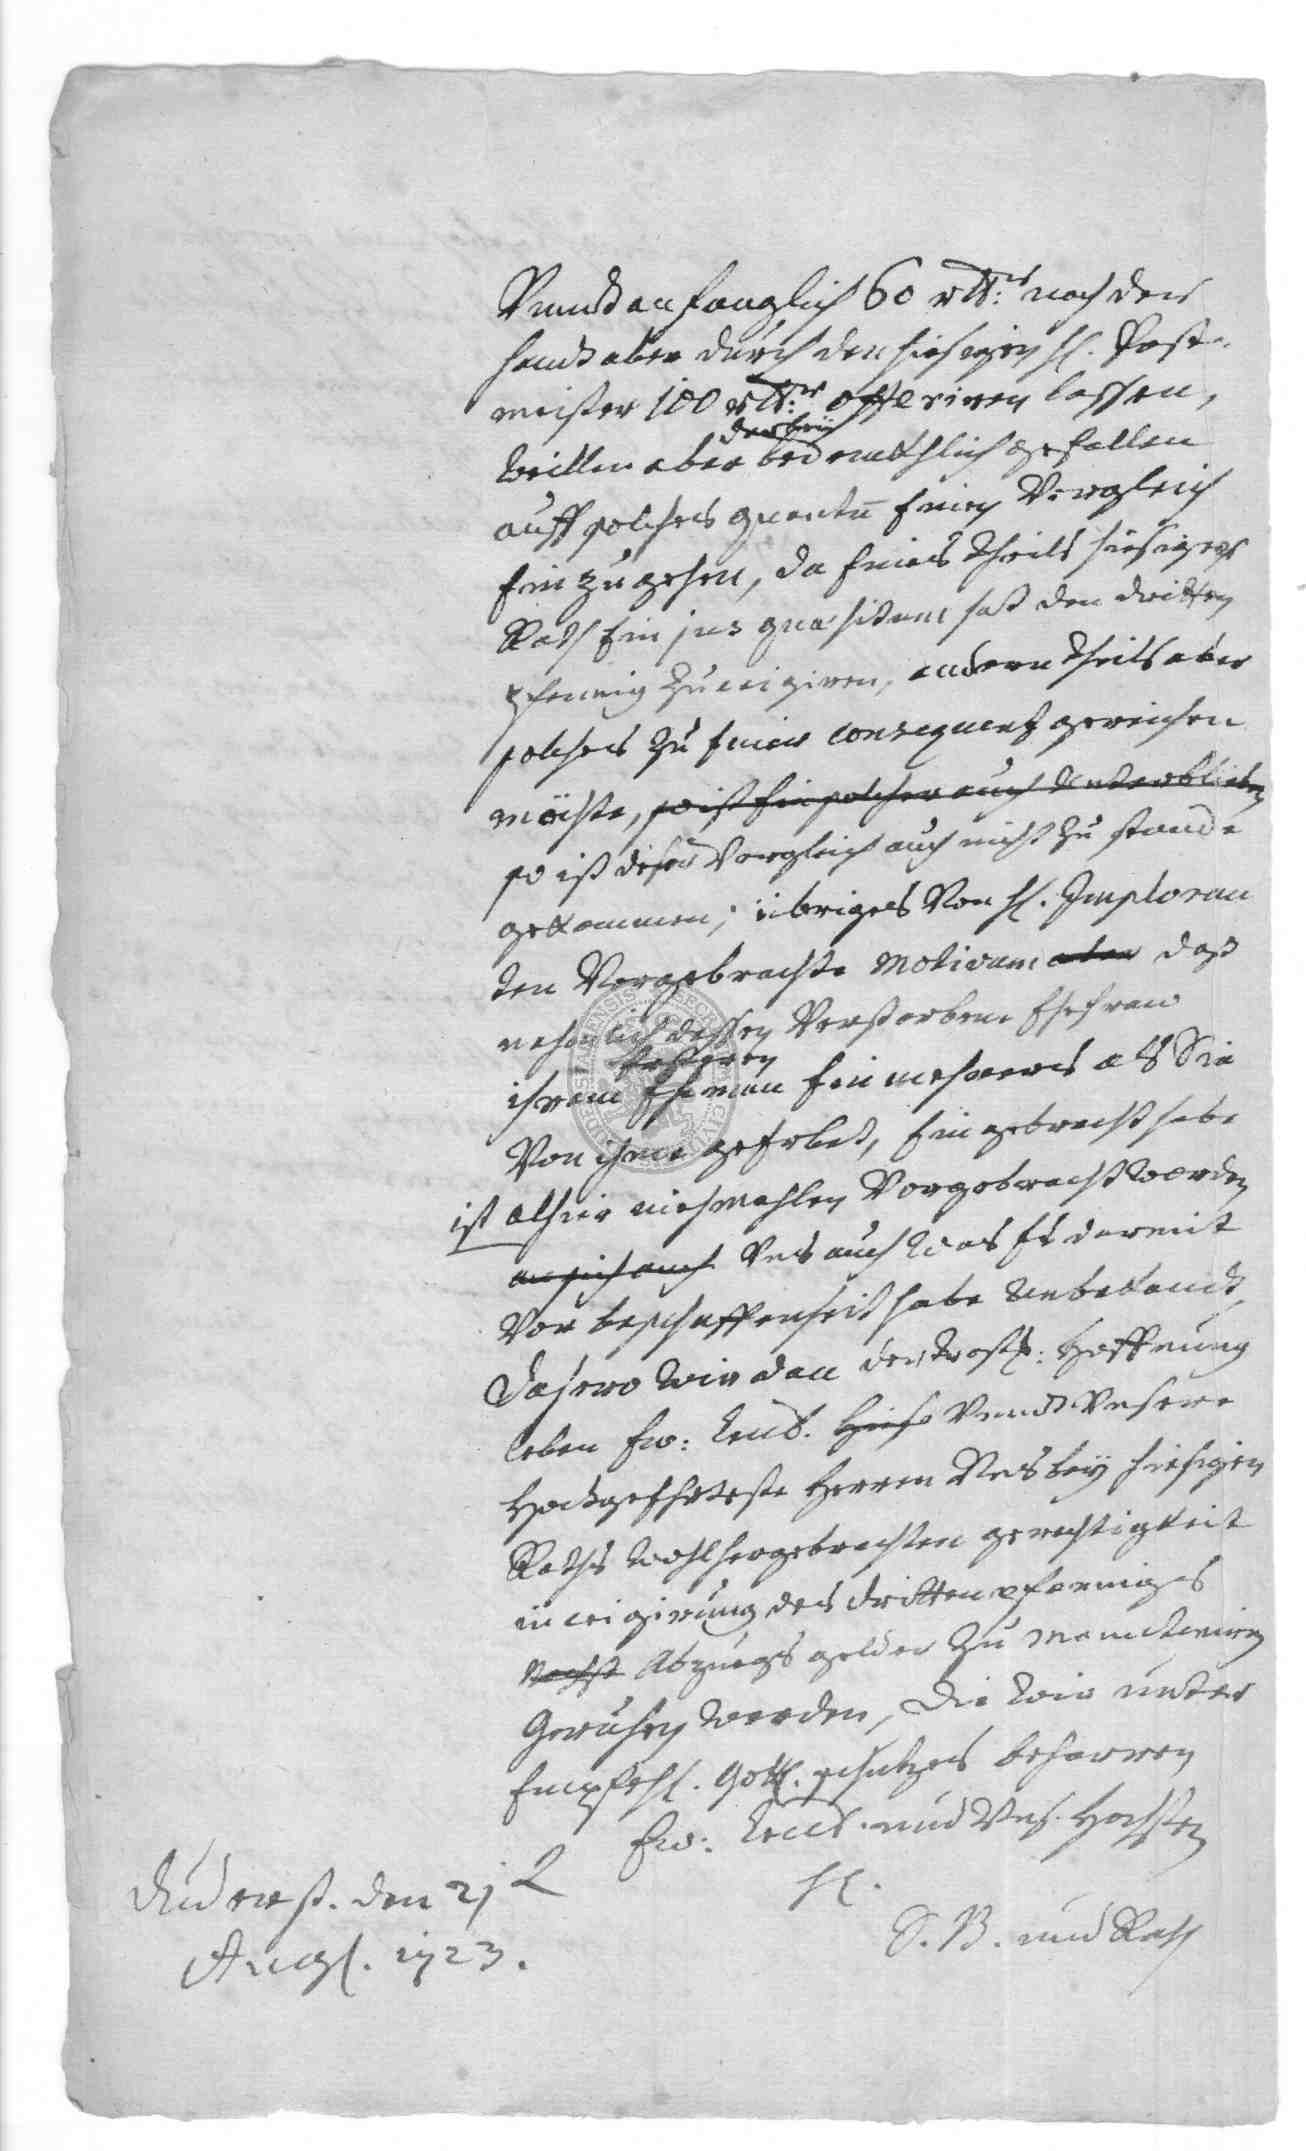 Vnndt anfanglich 60 rth: nach der
handt aber durch den hiesigen H. Post-
meister 100 rth: offeriren lassen,
weillen aber bedencklich gefallen
darbeÿ
auff solches quantū Einen Vergleich
Einzugehen, da Eines theils hiesiger
Rath Ein jus quaesitum hat den dritten
pfennig zu exigiren, andern theils aber
solches zu Einer consequentz gereichen
möchte, so ist Ein solcher auch unterblieben
so ist diser Vergleich auch nicht zu stande
gekommen; übriges Von H. Imploran
ten Vorgebrachte Motivum aber daß
nehmlich dessen Verstorbene Ehefraw
ersteren
ihrem Eheman Ein mehreres alß Sie
Von ihme geErbet, Eingebracht habe
ist alhier niehmahlen Vorgebracht worden
an sich auch Vns auch was Es darmit
Vor beschaffenheit habe unbekandt,
Dahero wir dan der trostl: Hoffnung
leben Ew: Vnndt Vnsere
Hochgeehrteste Herren Vns beÿ hiesigen
Raths wohlhergebrachten gerechtigkeit
in exigirung des dritten pfenniges
Abzuegs gelder zu manuteniren
Geruhen werden, Die wir unter
Empfehl. Göttl. schutzes beharren
Ew: und Vns. Hochgten
H.
S. B. und Rath
Duderst. den 21
Aug. 1723.